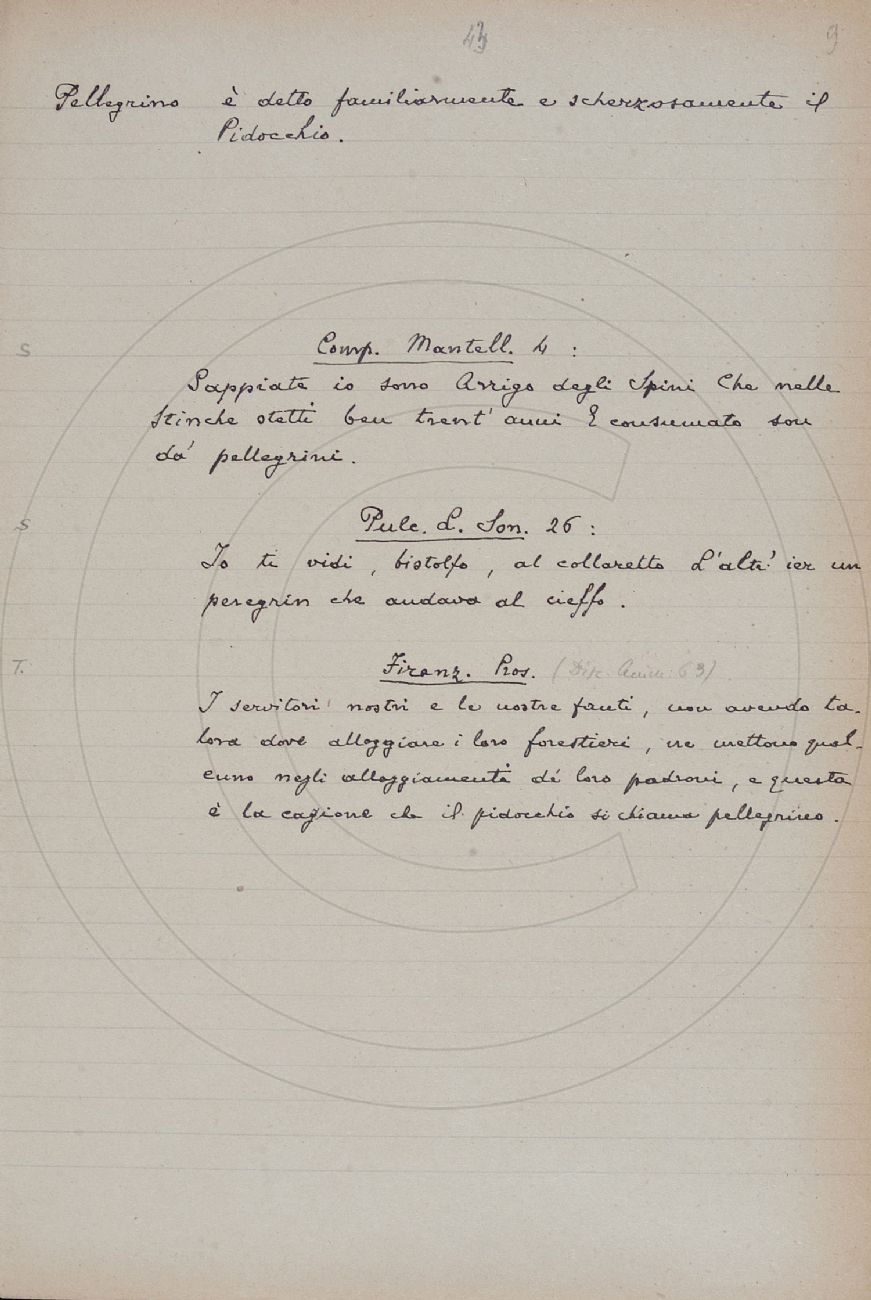 9
Pellegrino è detto familiarmente e scherzosamente il
Pidocchio.
S
Comp. Mantell. 4 :
Sappiate io sono Arrigo degli Spini Che nelle
Stinche stetti ben trent' anni E consumato son
da' pellegrini.
S
Pulc. L. Son. 26 :
Io ti vidi, bistolfo, al collaretto L'altr' ier un
peregrin che andava al cieffo.
T.
Firenz. Pros. (Disc. Anim. 63)
I servitori nostri e le nostre fanti, non avendo ta-
lora dove alloggiare i loro forestieri, ne mettono qual-
cuno negli alloggiamenti de' loro padroni, e questa
è la cagione che il pidocchio si chiama pellegrino.